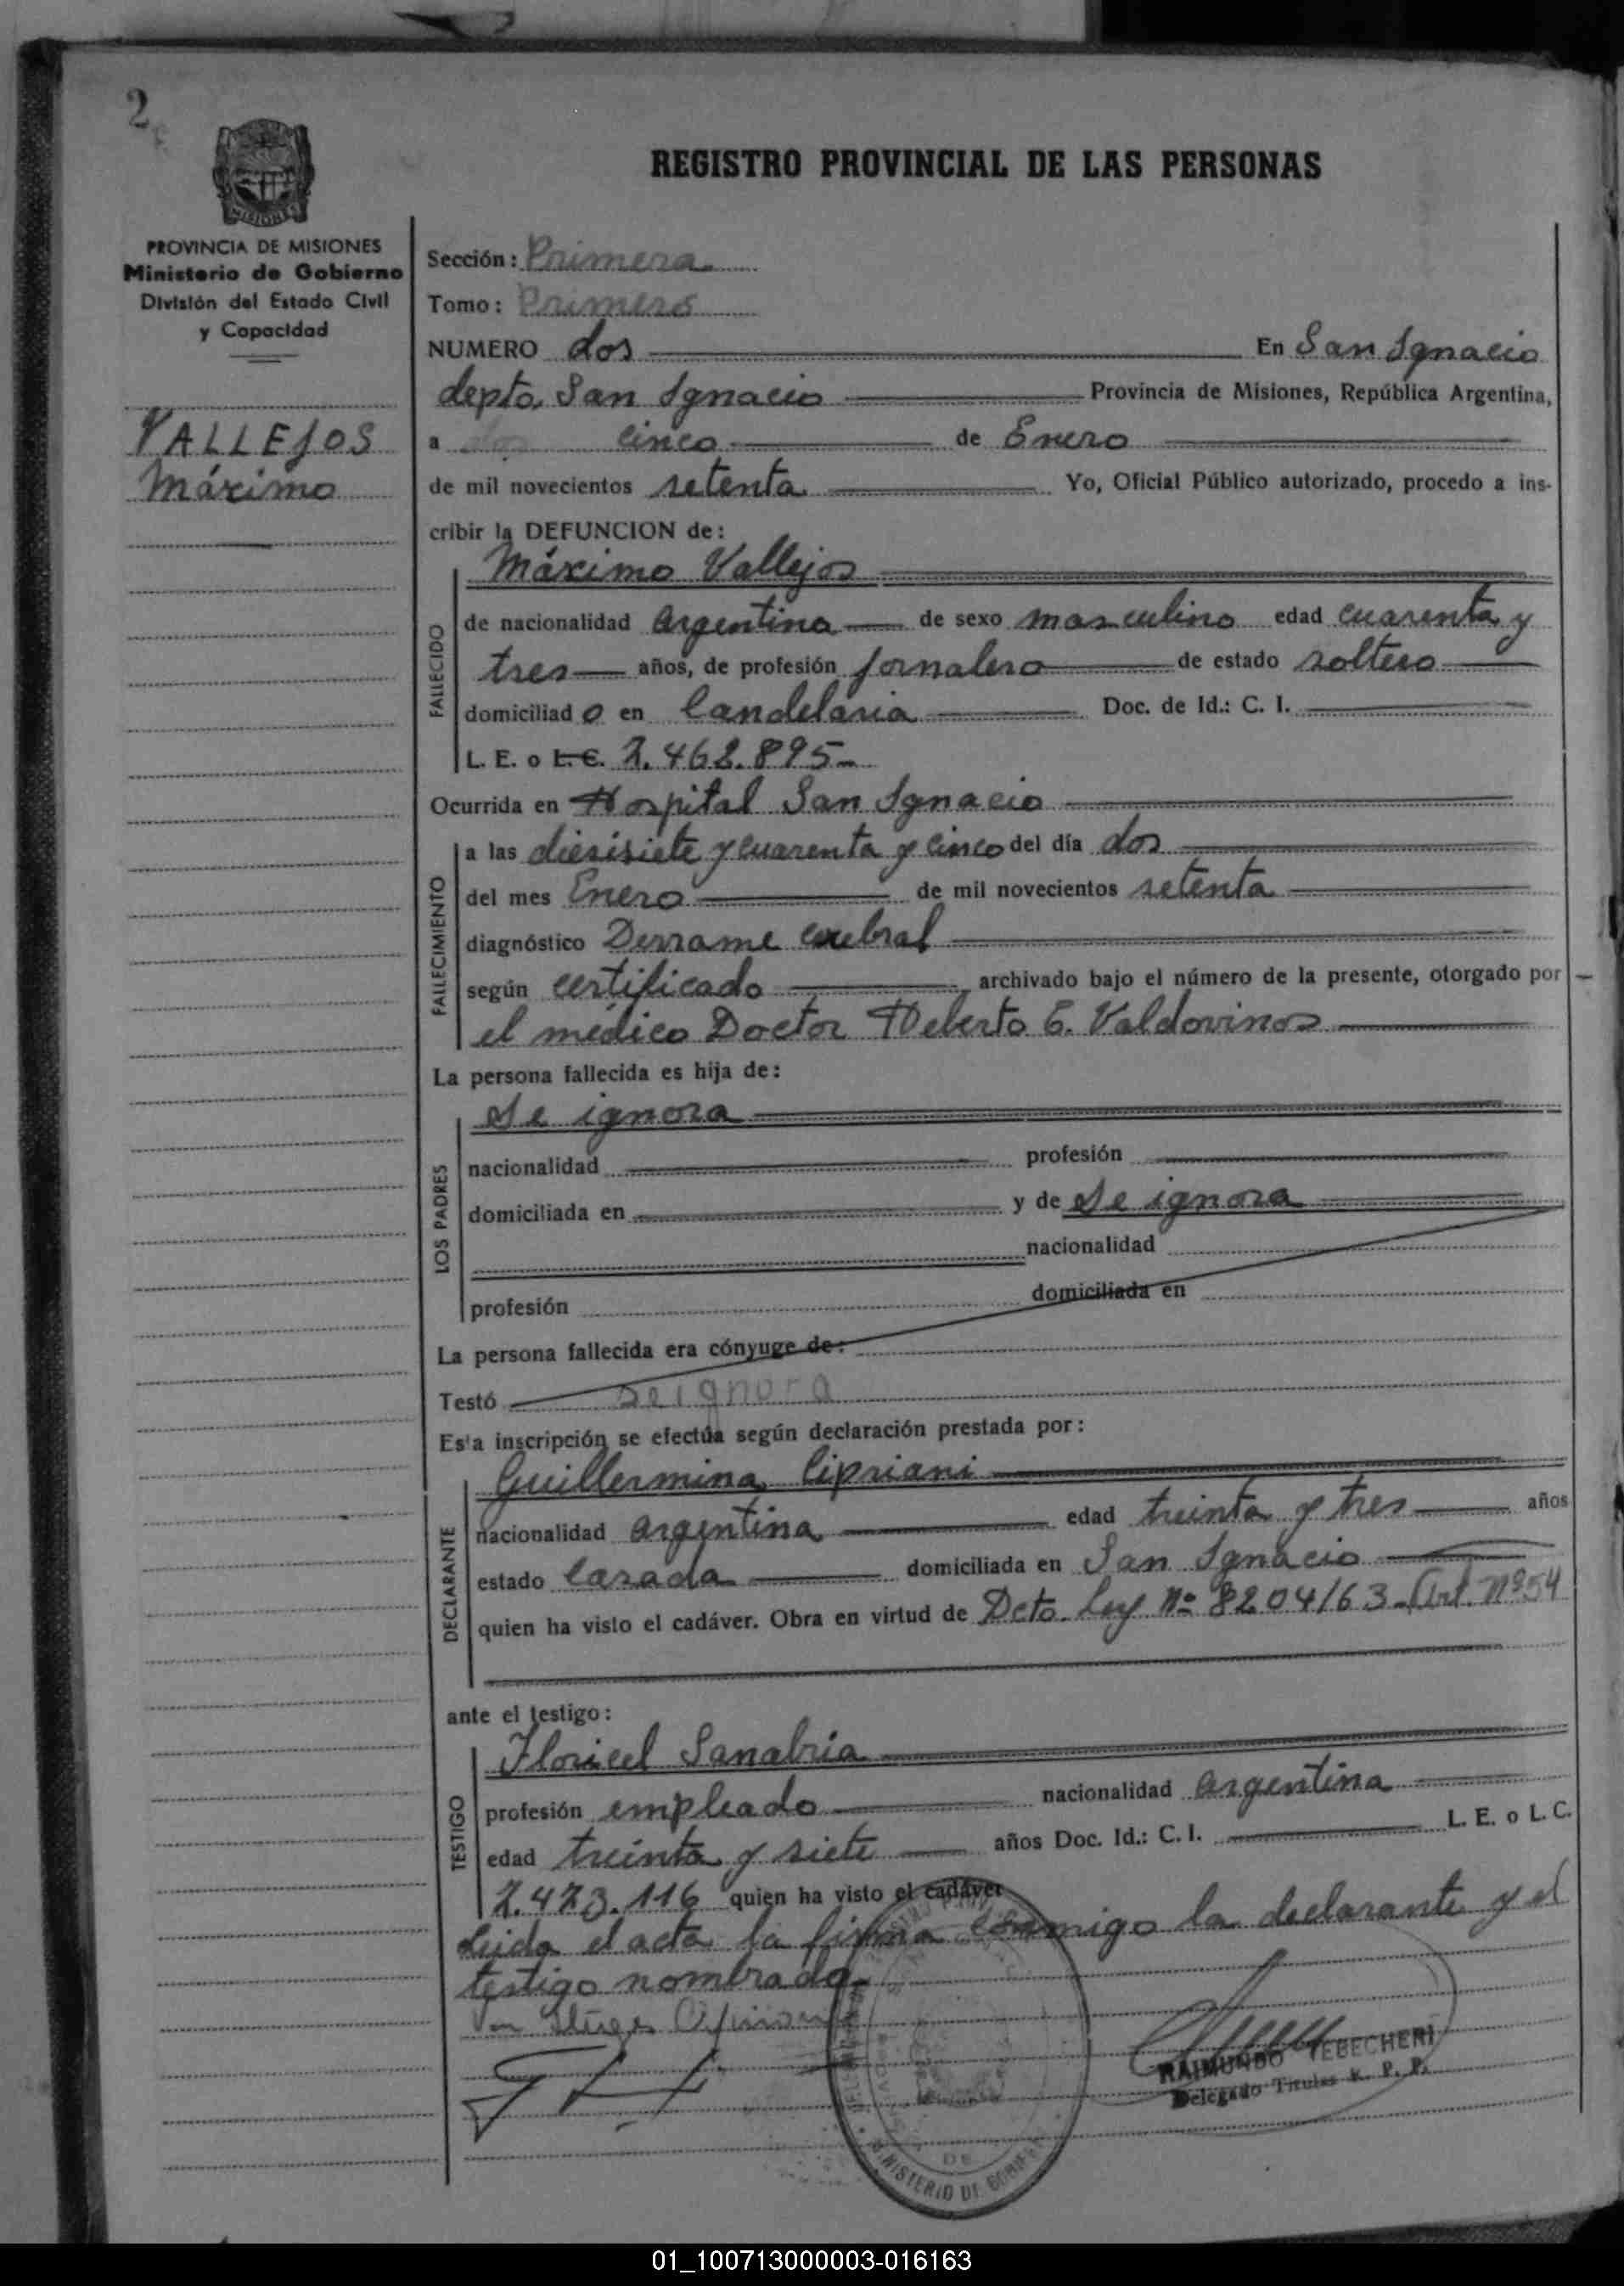 2
REGISTRO PROVINCIAL DE LAS PERSONAS
MISIONES
PROVINCIA DE MISIONES
Ministerio de Gobierno
División del Estado Civil
y Capacidad
VALLEJOS
Máximo
Sección: Primera
Tomo: Primero
NUMERO dos En San Ignacio
depto. San Ignacio Provincia de Misiones, República Argentina,
a dos cinco de Enero
de mil novecientos setenta Yo, Oficial Público autorizado, procedo a ins-
cribir la DEFUNCION de:
Máximo Vallejos
FALLECIDO
de nacionalidad argentina de sexo masculino edad cuarenta y
tres años, de profesión jornalero de estado soltero
domiciliado en Candelaria Doc. de Id.: C. I.
L. E. o L.C. 7.462.895
Ocurrida en Hospital San Ignacio
FALLECIMIENTO
a las diesisiete y cuarenta y cinco del día dos
del mes Enero de mil novecientos setenta
diagnóstico Derrame cerebral
según certificado archivado bajo el número de la presente, otorgado por
el médico Doctor Heberto E. Valdovinos
La persona fallecida es hija de:
LOS PADRES
Se ignora
nacionalidad profesión
domiciliada en y de Se ignora
nacionalidad
profesión domiciliada en
La persona fallecida era cónyuge de:
Testó se ignora
Esta inscripción se efectúa según declaración prestada por:
DECLARANTE
Guillermina Cipriani
nacionalidad argentina edad treinta y tres años
estado casada domiciliada en San Ignacio
quien ha visto el cadáver. Obra en virtud de Dcto. Ley Nº 8204/63 - Art. Nº 54
ante el testigo:
TESTIGO
Floricel Sanabria
profesión empleado nacionalidad argentina
edad treinta y siete años Doc. Id.: C. I. L. E. o L. C.
7.473.116 quien ha visto el cadáver
Leida el acta la firma conmigo la declarante y el
testigo nombrado
RAIMUNDO TEBECHERI
Delegado Titular R. P. P.
DE
MINISTERIO DE GOBIERNO
01_100713000003-016163